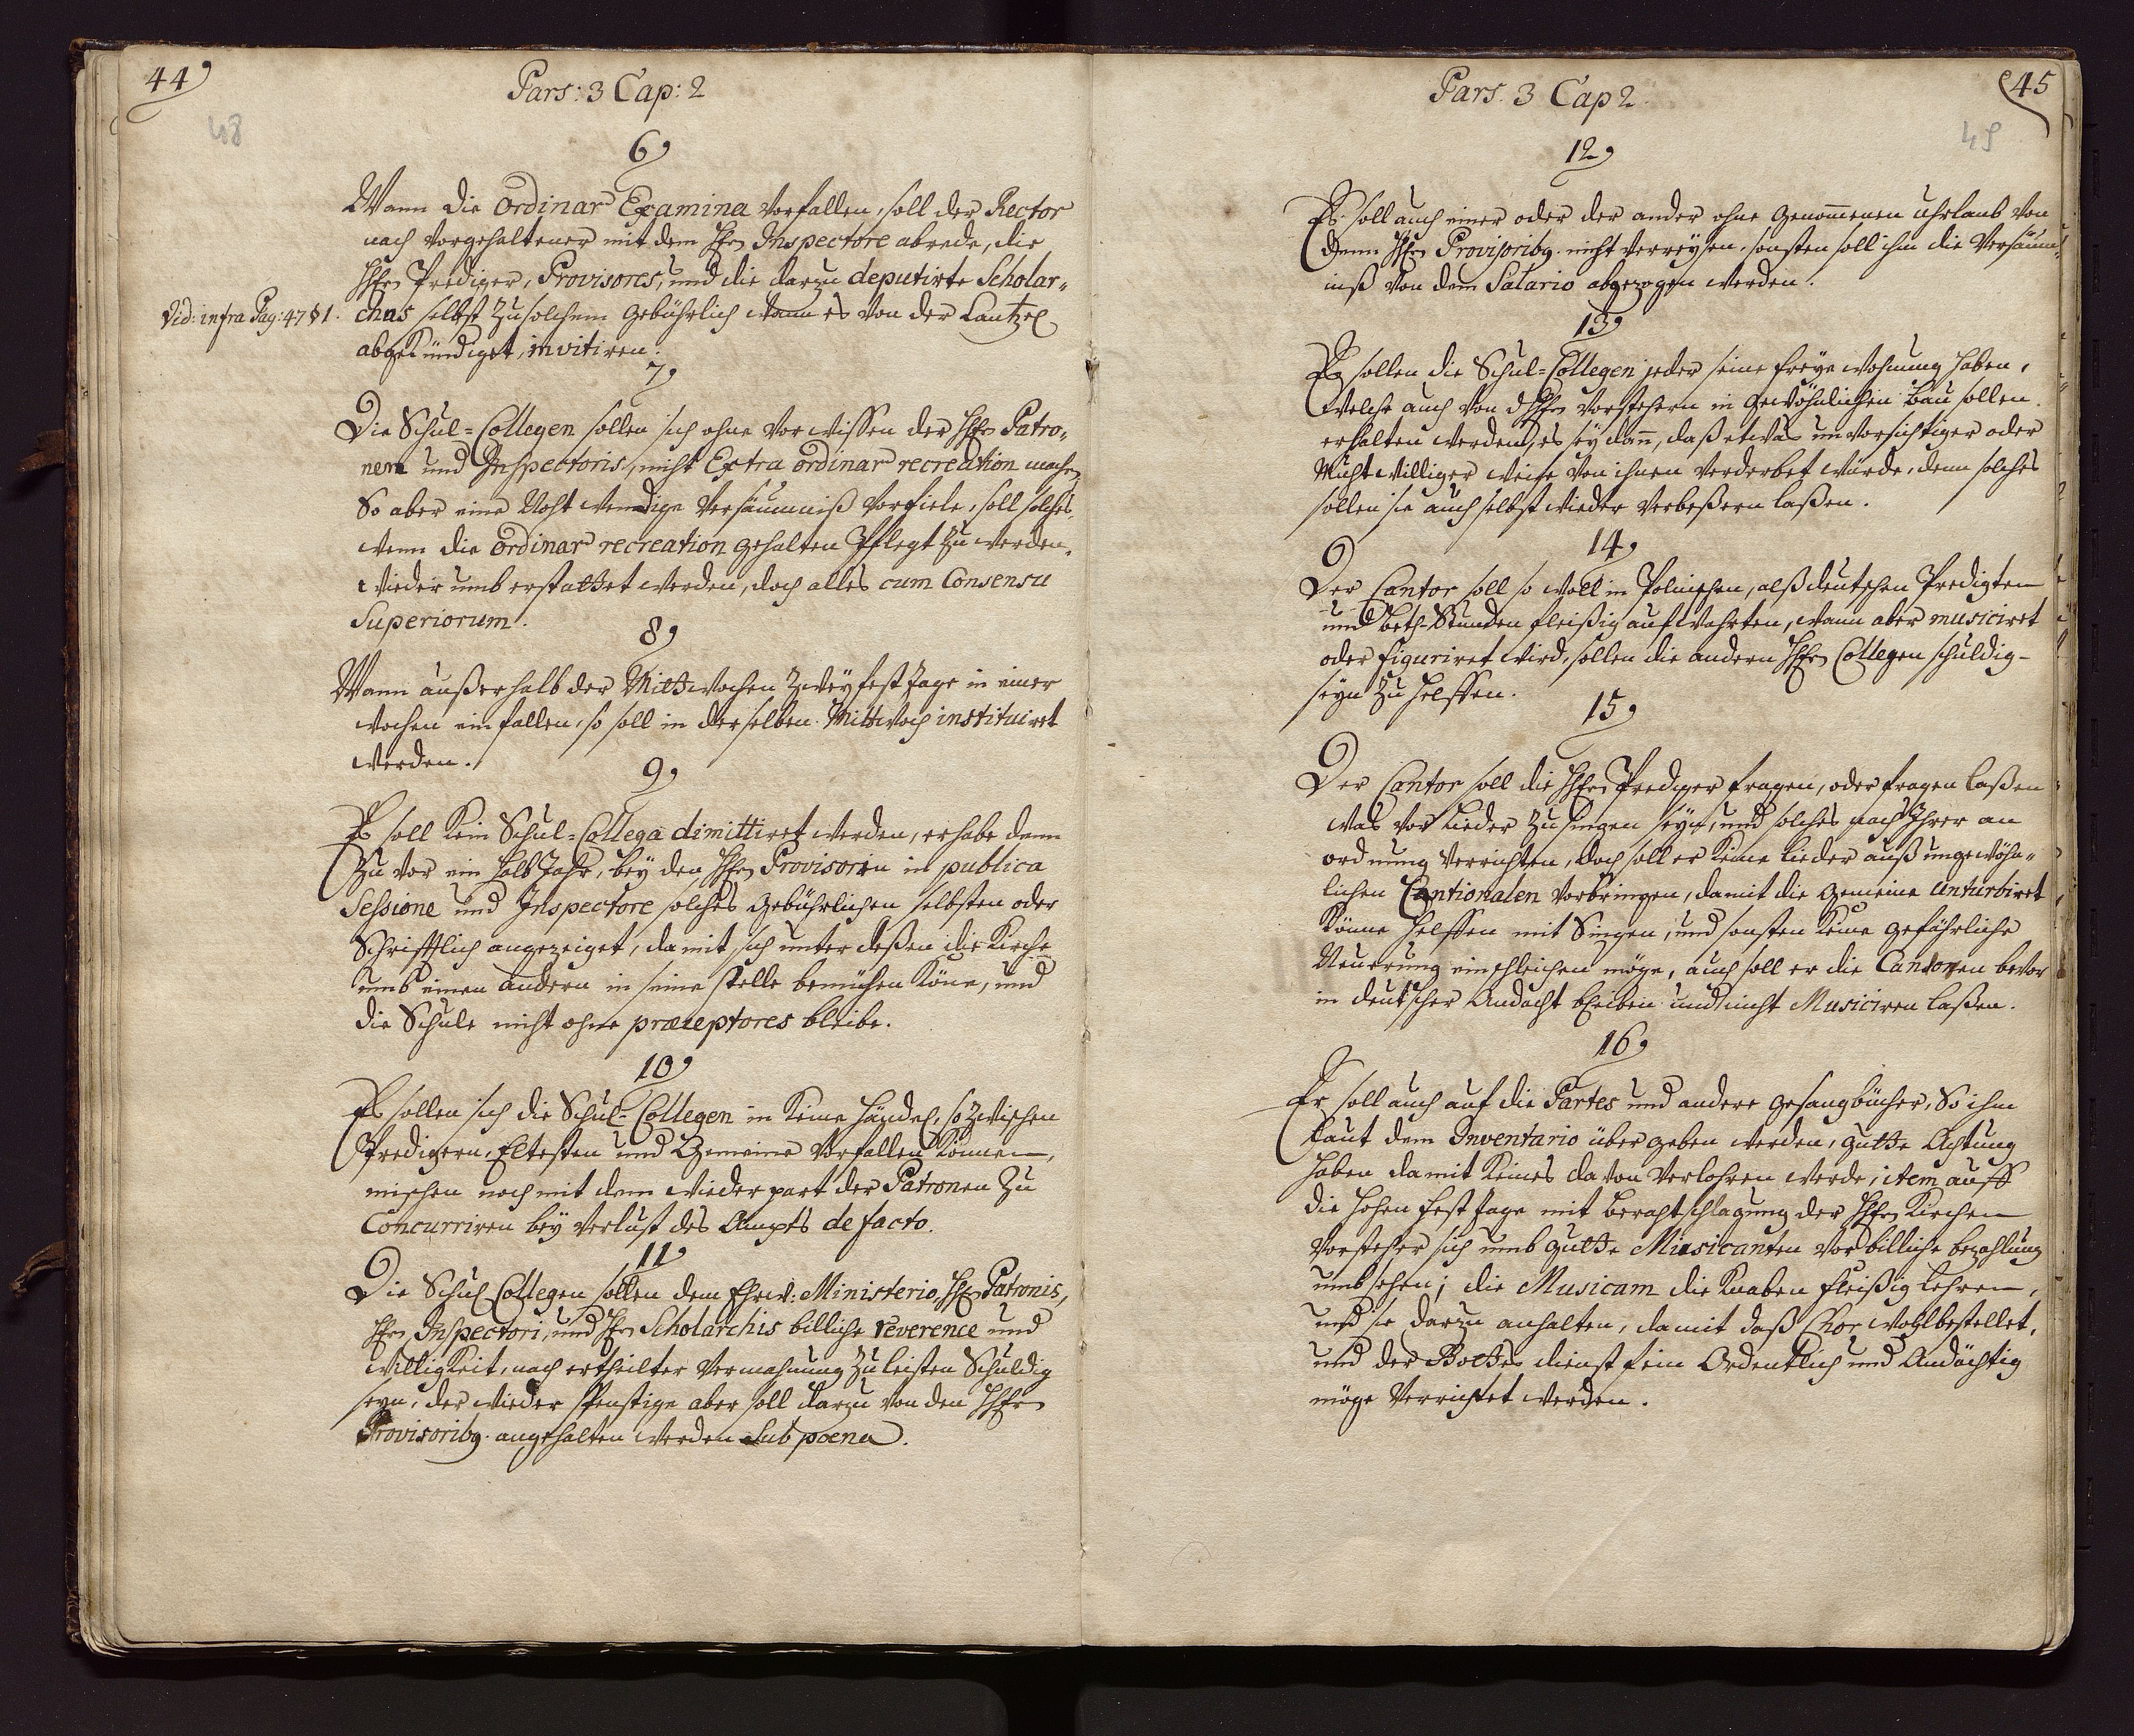 44
48
Pars: 3 Cap: 2
6
Wann die Ordinar Examina vorfallen, soll der Rector
nach vorgehaltener mit dem Hhrn Inspectore abrede, die
Hhrn Prediger, Provisores, und die darzu deputirte Scholar-
Vid: infra Pag: 47 § 1.
chas selbst zu solchem gebührlich wann es von der Cantzel
abgekündiget, invitiren.
7
Die Schul=Collegen sollen sich ohne vorwissen der Hhrn Patro-
nen und Inspectoris, nicht Extra ordinar recreation machen,
So aber eine Nohtwendige Versäumniß vorfiele, soll solches,
wenn die Ordinar recreation gehalten Pflegt zu werden,
wieder umb erstattet werden, doch alles cum Consensu
Superiorum.
8
Wann außerhalb der Mittwochen Zwey fest Tage in einer
wochen einfallen, so soll in derselben Mittwoch instituiret
werden.
9
Es soll kein Schul=Collega dimittiret werden, er habe denn
Zuvor ein halb Jahr, bey den Hhrn Provisoren in publica
Sessione und Inspectore solches gebührlichen selbsten oder
Schrifftlich angezeiget, damit sich unter deßen die Kirche
umb einen andern in seine stelle bemühen köne, und
die Schule nicht ohne præceptores bleibe.
10
Es sollen sich die Schul=Collegen in keine Händel, so zwischen
Predigern, Eltesten und Gemeine Vorfallen können,
mischen noch mit dem wieder part der Patronen zu
Concurriren bey verlust des Ampts de facto.
11
Die Schul Collegen sollen dem Ehrw: Ministerio, Hhrn Patronis,
Hhrn Inspectori, und Hhrn Scholarchis billiche reverence und
willigkeit, nach ertheilter Vermahnung zu leisten Schuldig
seyn, der wieder Spenstige aber soll darzu von den Hhrn
Provisoribg. angehalten werden sub poena.
45
49
Pars. 3 Cap 2
12
Es soll auch einer oder der ander ohne genom̄enen uhrlaub von
denn Hhrn Provisoribg. nicht verreysen, sonsten soll ihm die Versäum-
niß von dem Salario abgezogen werden.
13
Es sollen die Schul=Collegen jeder seine freye wohnung haben,
welche auch von d Hhrn Vorstehern in gewöhnlichen bau sollen
erhalten werden, es sey dan̄, daß etwas unvorsichtiger oder
Muhtwilliger weise von ihnen verderbet würde, denn solches
sollen sie auch selbst wieder verbeßern laßen.
14
Der Cantor soll so woll in Polnischen, alß deutschen Predigten
und Beth-Stunden fleißig aufwahrten, wann aber musiciret
oder figuriret wird, sollen die andern Hhrn Collegen schuldig
seyn zu helffen.
15
Der Cantor soll die Hhrn Prediger fragen, oder fragen laßen
was vor Lieder zu singen seyn, und solches nach Ihrer an
ordnung verrichten, doch soll er keine Lieder auß ungewöhn-
lichen Cantionalen vorbringen, damit die gemeine unturbiret
könne helffen mit Singen, und sonsten keine gefährliche
Neuerung einschleichen möge, auch soll er die bevor
in deutscher Andacht bleiben und nicht Musiciren laßen.
16
Er soll auch auf die Partes und andere gesangbücher, so ihm
Laut dem Inventario übergeben werden, gutte Achtung
haben damit keines davon verlohren werde, item auff
die hohen fest Tage mit berahtschlagung der Hhrn Kirchen
Vorsteher sich umb gutte Musicanten vor billiche bezahlung
umbsehen; die Musicam die Knaben fleißig lehren,
und sie darzu anhalten, damit daß Chor wohlbestellet,
und der Gottes dienst fein Ordentlich und Andächtig
möge verrichtet werden.